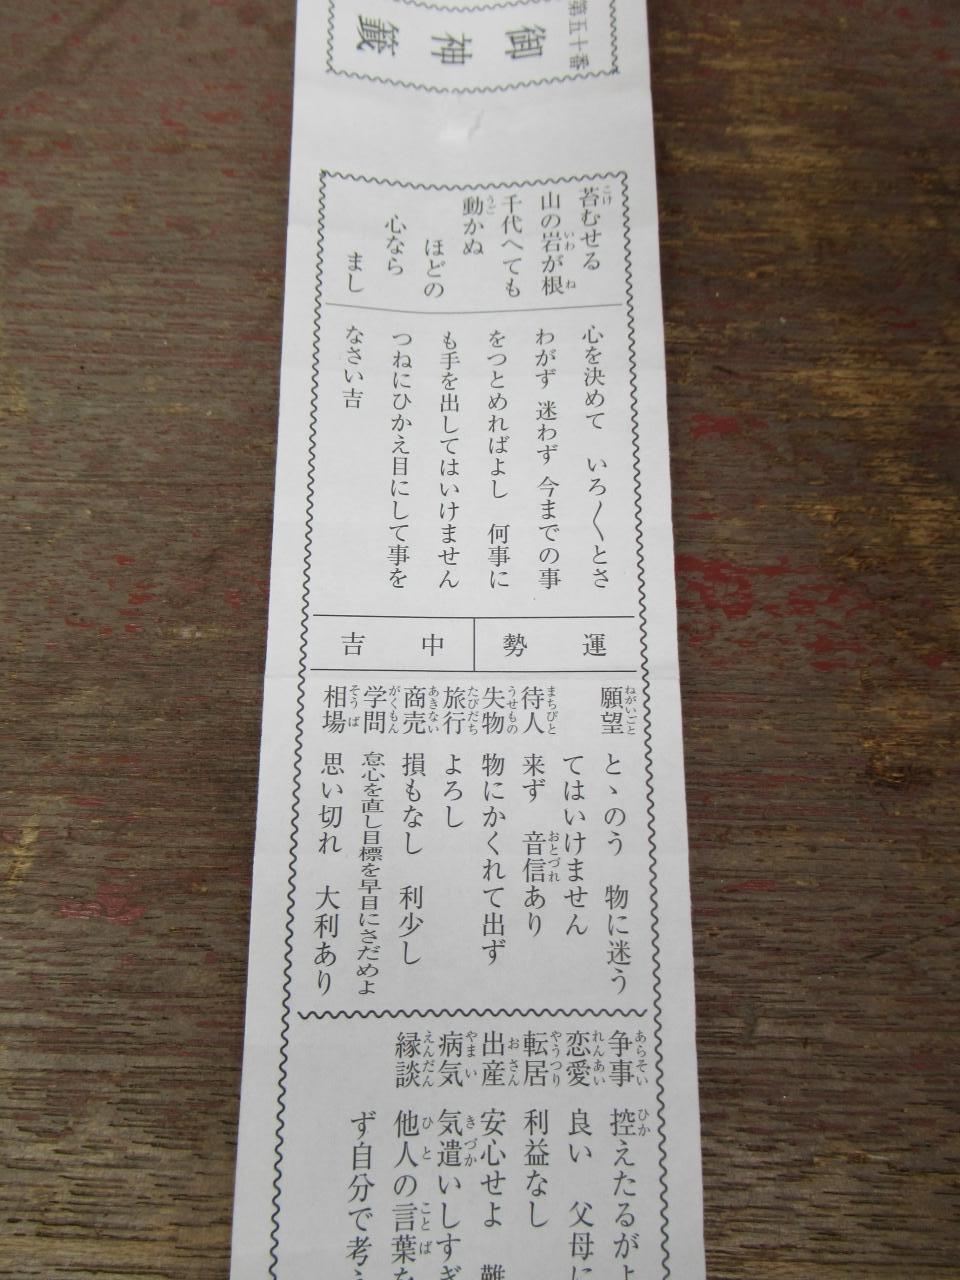 第五十番
御神籤
苔むせる
山の岩が根
千代へても
動かぬ
ほどの
心なら
まし
心を決めて いろ〱とさ
わがず 迷わず 今までの事
をつとめればよし 何事に
も手を出してはいけません
つねにひかえ目にして事を
なさい吉
運勢 中吉
願望 とゝのう 物に迷う
てはいけません
待人 来ず 音信あり
失物 物にかくれて出ず
旅行 よろし
商売 損もなし 利少し
学問 怠心を直し目標を早目にさだめよ
相場 思い切れ 大利あり
争事 控えたるがよ
恋愛 良い 父母に
転居 利益なし
出産 安心せよ 難
病気 気遣いしすぎ
縁談 他人の言葉を
ず自分で考え